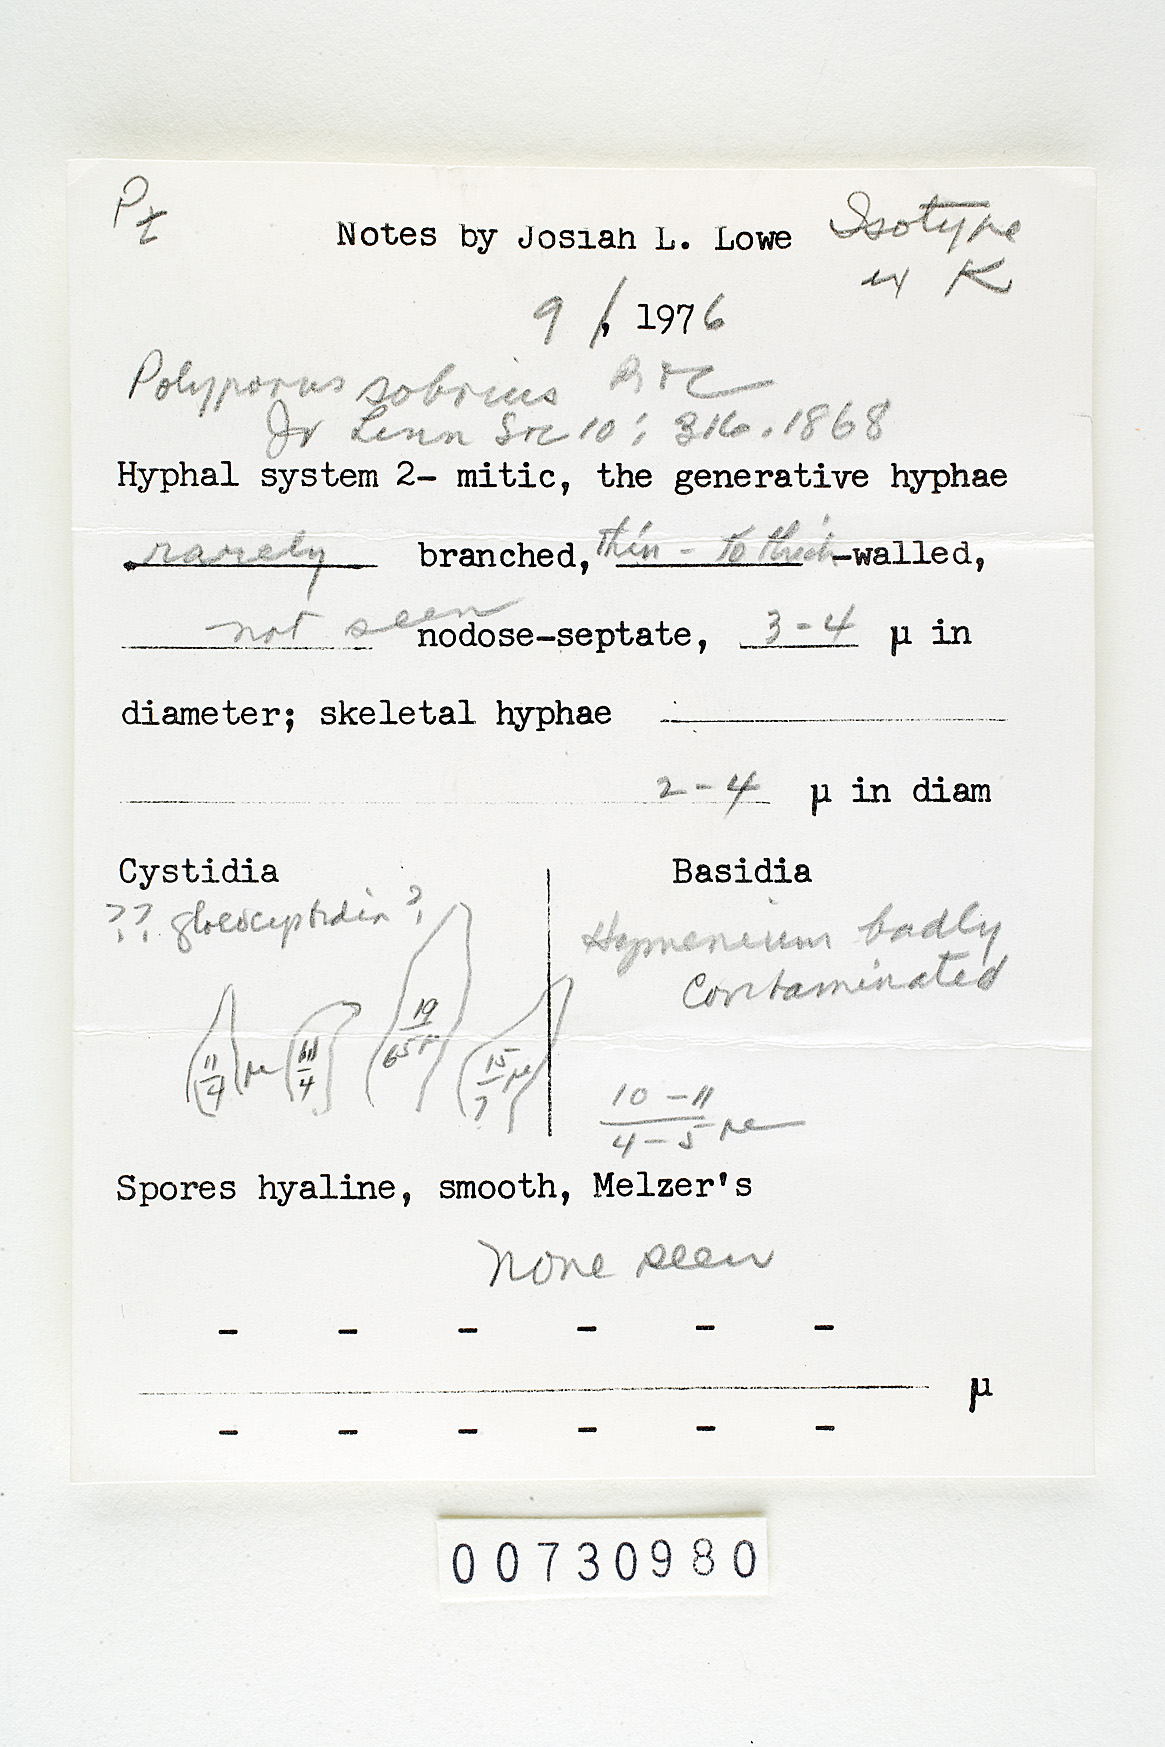 Pt
Notes by Josiah L. Lowe Isotype
ex K
9 /, 1976
Polyporus sobrius B & C
Jr Linn Soc 10: 316. 1868
Hyphal system 2- mitic, the generative hyphae
rarely branched, thin - to thick-walled,
not seen nodose-septate, 3-4 µ in
diameter; skeletal hyphae
2-4 µ in diam
Cystidia Basidia
?? gloeocystidia?
Hymenium badly
Contaminated
11/4 µ 11/4 19/6.5 µ 15/7 µ
10-11/4-5 µ
Spores hyaline, smooth, Melzer's
none seen
- - - - - -
µ
- - - - - -
00730980